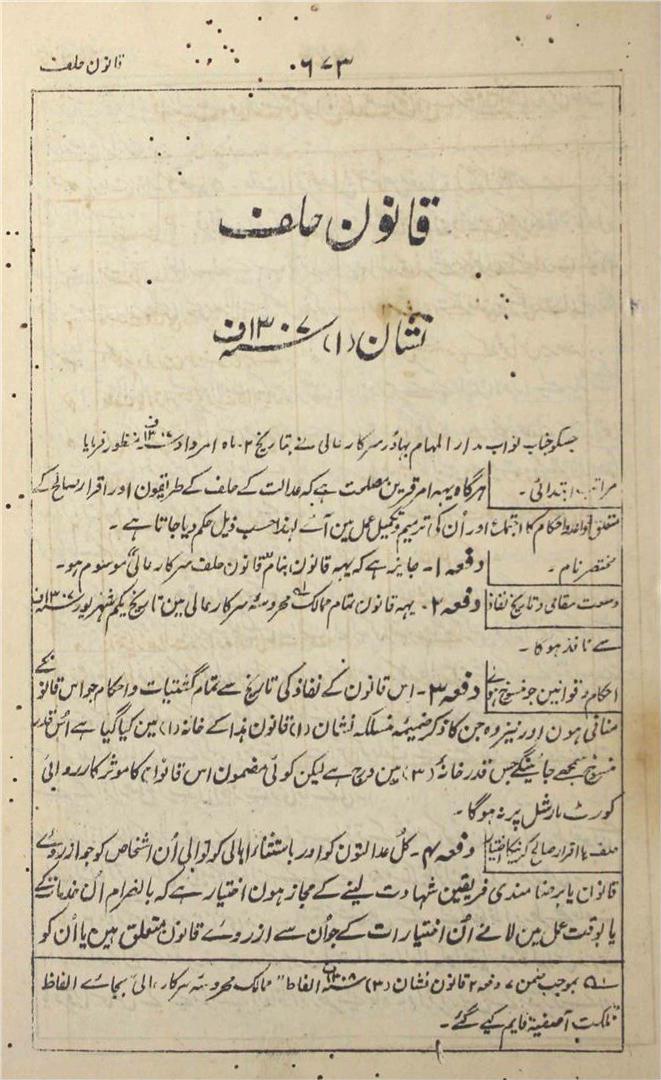 قانون حلف
۰۶۷۳
قانون حلف
نشان (۱) ۱۳۰۷ سنہ ف
جسکو جناب نواب مدار المہام بہادر سرکار عالی نے بتاریخ ۲۰ ماہ امرداد سنہ ۱۳۰۷ ف منظور فرمایا
مراتب ابتدائی - ہرگاہ یہہ امر قرین مصلحت ہے کہ عدالت کے حلف کے طریقون اور اقرار صالح کے
متعلق قواعد و احکام کا اجتماع اور اُن کی ترمیم و تکمیل عمل مین آئے لہذا حسب ذیل حکم دیا جاتا ہے -
مختصر نام - دفعہ ۱ - جایز ہے کہ یہہ قانون بنام قانون حلف سرکار عالی موسوم ہو -
وسعت مقامی و تاریخ نفاذ دفعہ ۲ - یہہ قانون تمام ممالک محروسہ سرکار عالی مین تاریخ یکم شہریور سنہ ۱۳۰۷ ف
سے نافذ ہوگا -
احکام و قوانین جو منسوخ ہونگے دفعہ ۳ - اِس قانون کے نفاذ کی تاریخ سے تمام گشتیات و احکام جو اس قانون کے
منافی ہون اور نیز وہ جن کا ذکر ضمیمہ منسلکہ نشان (۱) قانون ہذا کے خانہ (۱) مین کیا گیا ہے اُس قدر
منسوخ سمجھے جائینگے جس قدر خانہ (۳) مین درج ہے لیکن کوئی مضمون اس قانون کا موثر کارروائی
کورٹ مارشل پر نہ ہوگا -
حلف یا اقرار صالح کرنیکا اختیار دفعہ ۴ - کل عدالتون کو اور باستثناء اہالی کوتوالی اُن اشخاص کو جو از روے
قانون یا برضامندی فریقین شہادت لینے کے مجاز ہون اختیار ہے کہ بانصرام اُن خدمات کے
یا بوقت عمل مین لانے اُن اختیارات کے جو اُن سے از روے قانون متعلق ہین یا اُن کو
۱؎ بموجب ضمن ۷ دفعہ ۲ قانون نشان (۳) سنہ ۱۳۰۸ ف الفاظ "ممالک محروسہ سرکار عالی" بجائے الفاظ
مملکت آصفیہ قایم کیے گئے -